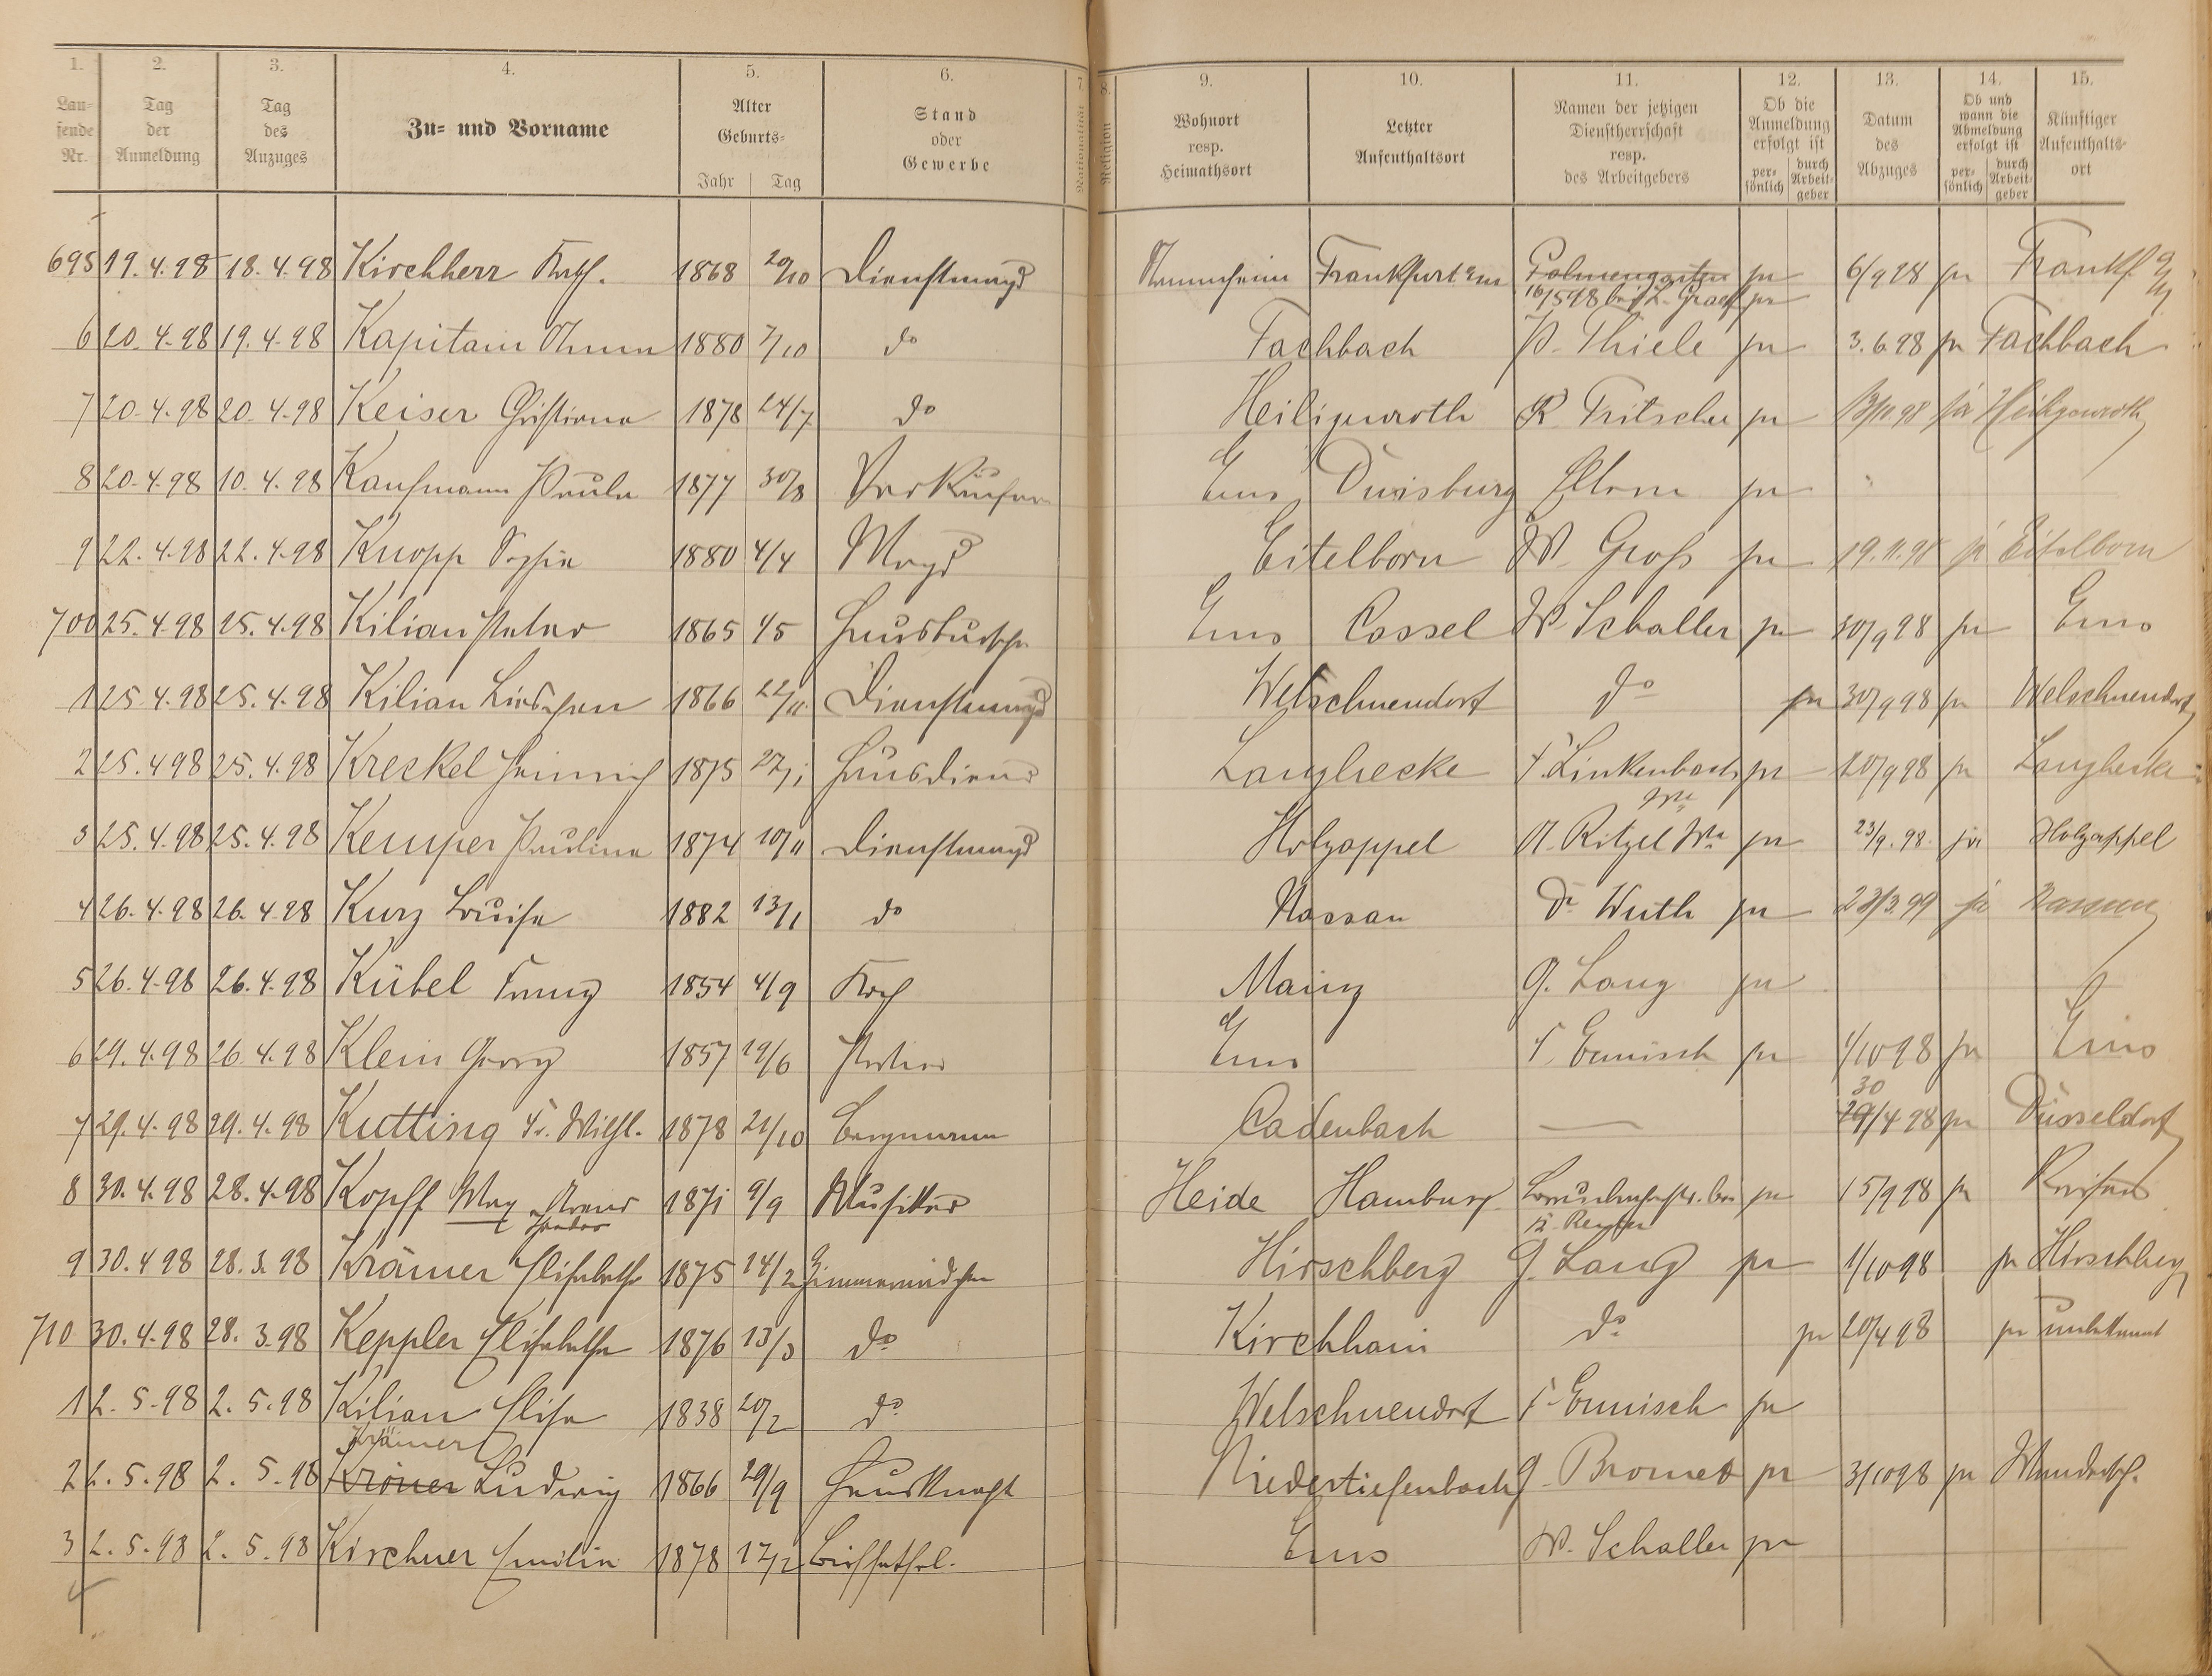 1. 2. 3. 4. 5. 6. 7. 8. 9. 10. 11. 12. 13. 14. 15.
Laufende Nr.
Tag der Anmeldung
Tag des Anzuges
Zu- und Vorname
Alter Geburts- Jahr Tag
Stand oder Gewerbe
Nationalität
Religion
Wohnort resp. Heimathsort
Letzter Aufenthaltsort
Namen der jetzigen Dienstherrschaft resp. des Arbeitgebers
Ob die Anmeldung erfolgt ist persönlich durch Arbeitgeber
Datum des Abzuges
Ob und wann die Abmeldung erfolgt ist persönlich durch Arbeitgeber
Künftiger Aufenthaltsort
695 19.4.98 18.4.98 Kirchherr Kath. 1868 20/10 Dienstmagd Frankfurt a/m ja 6/9 98 ja Frankf. a/M
16/5 98 bei L. Graef ja
6 20.4.98 19.4.98 Kapitain Anna 1880 7/10 do Fachbach P. Thiele ja 3.6.98 ja Fachbach
7 20.4.98 20.4.98 Keiser Christiana 1878 24/7 do Heiligenroth R Fritsche ja 13/11 98 ja Heiligenroth
8 20.4.98 10.4.98 Kaufmann Paula 1877 30/8 Verkäuferin Ems Duisburg ja
9 22.4.98 22.4.98 Knopp Sophie 1880 4/4 Magd Eitelborn W. Groß ja 19.11.98 ja Eitelborn
700 25.4.98 25.4.98 Kilian Peter 1865 1/5 Hausbursche Ems Cassel W. Schaller ja 30/9 98 ja Ems
1 25.4.98 25.4.98 Kilian Lieschen 1866 22/11 Dienstmagd Welschneudorf do ja 30/9 98 ja Welschneudorf
2 25.4 98 25.4.98 Kreckel Heinrich 1875 27/1 Hausdiener Langhecke F. Linkenbach Wwe ja 20/9 98 ja Langhecke
3 25.4.98 25.4.98 Kemper Paulina 1874 10/11 Dienstmagd Holzappel A. Ritzel Wwe ja 23/9.98. ja Holzappel
4 26.4.98 26.4.98 Kurz Louise 1882 13/1 do Nassau Dr Wuth ja 23/3 99 ja Nassau
5 26.4.98 26.4.98 Kübel Franz 1854 4/9 Koch Mainz G. Lang ja
6 29.4.98 26.4.98 Klein Georg 1857 19/6 Portier Ems F. Ermisch ja 1/10 98 ja Ems
7 29.4.98 29.4.98 Kutting Fr. Wilh. 1878 21/10 Bergmann Cadenbach — 30 29/4 98 ja Düsseldorf
8 30.4.98 28.4.98 Kopff Max 1871 9/9 Musiker Heide Hamburg ja 15/9 98 ja
9 30.4 98 28.3.98 Krämer Elisabethe 1875 14/2 Zimmermädchen Hirschberg G. Lang ja 1/10 98 ja Hirschberg
710 30.4.98 28.3.98 Keppler Elisabethe 1876 13/3 do Kirchhain do ja 20/4 98 ja unbekannt
1 2.5.98 2.5.98 Kilian Elise 1838 20/2 do Welschneudorf F. Ermisch ja
Krämer
2 2.5.98 2.5.98 Kröner Ludwig 1866 29/9 Hausknecht Niedertiefenbach G. Bromet ja 3/10 98 ja
3 2.5.98 2.5.98 Kirchner Emilie 1878 12/2 Ems W. Schaller ja